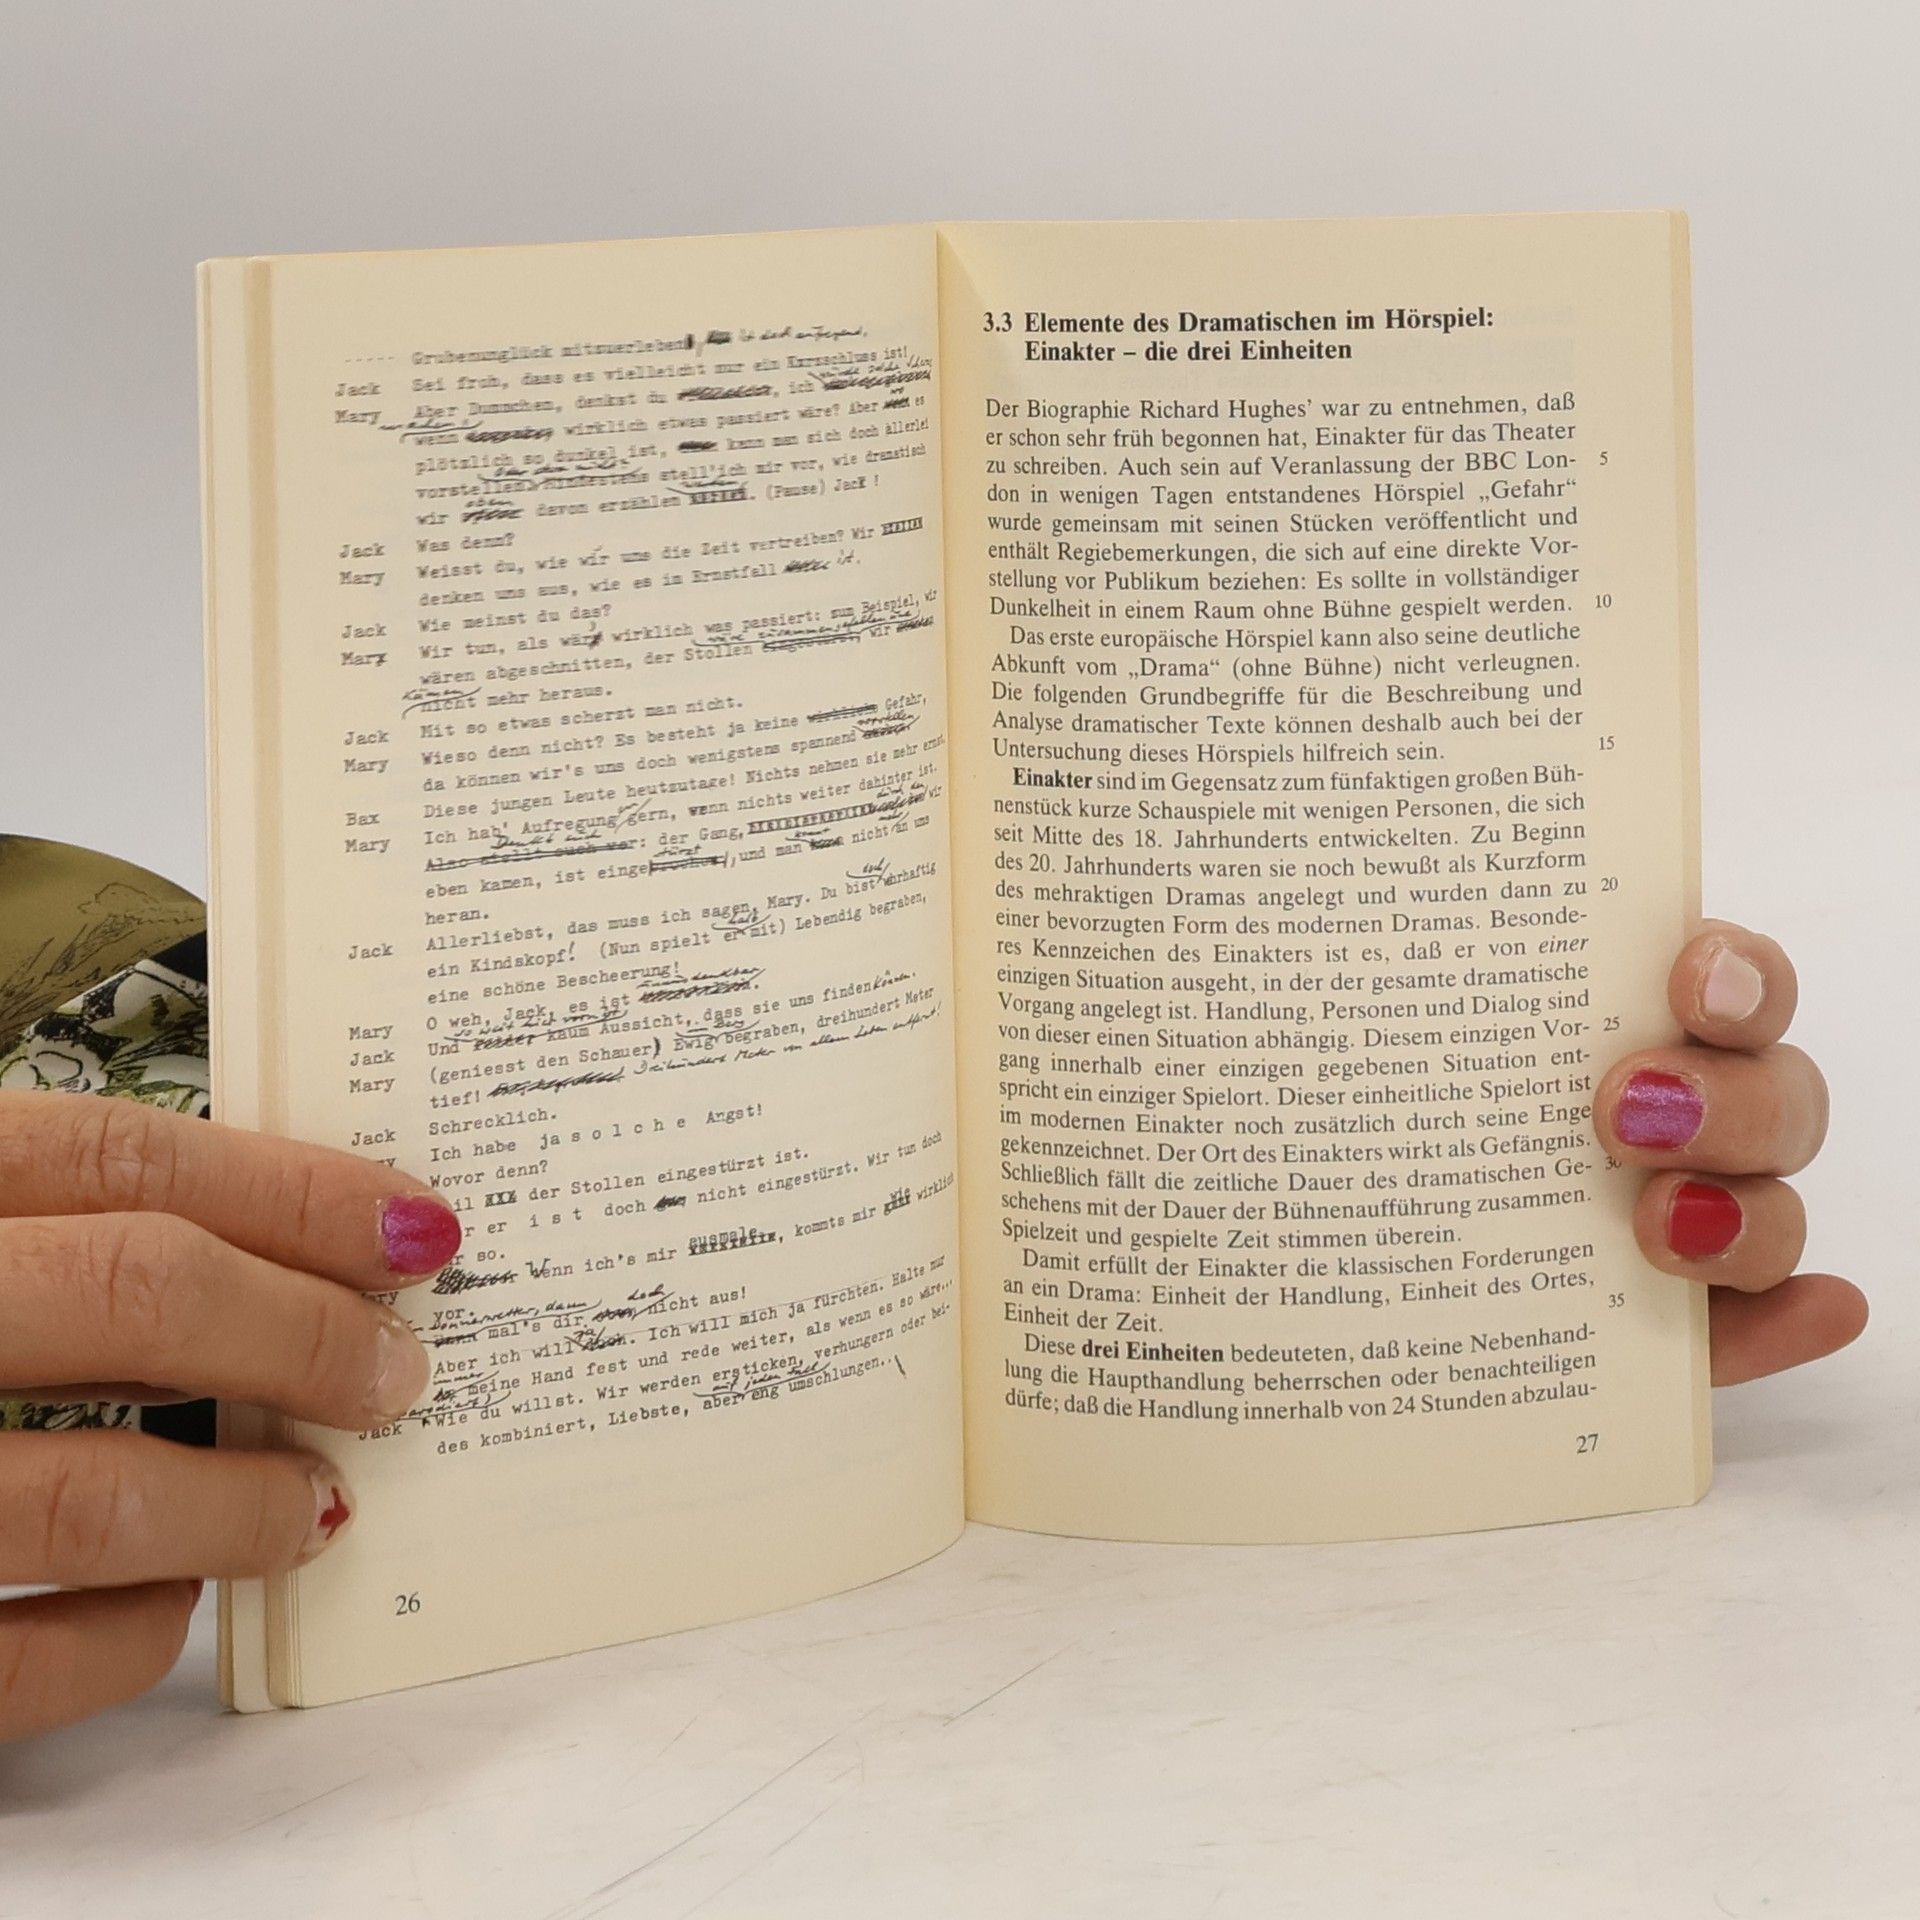 Grubenunglück mitzuerleben ist doch aufregend.
Jack Sei froh, dass es vielleicht nur ein Kurzschluss ist!
Mary Aber Dummchen, denkst du, ich
wenn wirklich etwas passiert wäre? Aber wo es
plötzlich so dunkel ist, kann man sich doch allerlei
vorstellen. Mindestens stell'ich mir vor, wie dramatisch
wir davon erzählen werden. (Pause) Jack!
Jack Was denn?
Mary Weisst du, wie wir uns die Zeit vertreiben? Wir
denken uns aus, wie es im Ernstfall ist.
Jack Wie meinst du das?
Mary Wir tun, als wär wirklich was passiert: zum Beispiel, wir
wären abgeschnitten, der Stollen wäre zusammengefallen und wir
kämen nicht mehr heraus.
Jack Mit so etwas scherzt man nicht.
Mary Wieso denn nicht? Es besteht ja keine wirkliche Gefahr,
da können wir's uns doch wenigstens spannend vorstellen
Bax Diese jungen Leute heutzutage! Nichts nehmen sie mehr ernst.
Mary Ich hab' Aufregung gern, wenn nichts weiter dahinter ist.
Denkt euch
Also stellt euch vor: der Gang, durch den wir
eben kamen, ist eingestürzt, und man kann nicht mehr an uns
heran.
Jack Allerliebst, das muss ich sagen, Mary. Du bist doch wahrhaftig
ein Kindskopf! (Nun spielt er halb mit) Lebendig begraben,
eine schöne Bescheerung!
Mary O weh, Jack, es ist kaum denkbar.
Jack Und kaum Aussicht, dass sie uns finden können.
Mary (geniesst den Schauer) Ewig begraben, dreihundert Meter
tief! Dreihundert Meter von allem Leben entfernt!
Jack Schrecklich.
Ich habe ja solche Angst!
Wovor denn?
il der Stollen eingestürzt ist.
r er ist doch nicht eingestürzt. Wir tun doch
r so.
Wenn ich's mir ausmale, kommts mir wie wirklich
vor.
Donnerwetter, dann mal's dir doch nicht aus!
Aber ich will ja. Ich will mich ja fürchten. Halte nur
immer meine Hand fest und rede weiter, als wenn es so wäre...
Jack Wie du willst. Wir werden ersticken, verhungern oder bei-
des kombiniert, Liebste, aber auf jeden Fall eng umschlungen..
26
3.3 Elemente des Dramatischen im Hörspiel:
Einakter – die drei Einheiten
Der Biographie Richard Hughes’ war zu entnehmen, daß
er schon sehr früh begonnen hat, Einakter für das Theater
zu schreiben. Auch sein auf Veranlassung der BBC Lon- 5
don in wenigen Tagen entstandenes Hörspiel „Gefahr“
wurde gemeinsam mit seinen Stücken veröffentlicht und
enthält Regiebemerkungen, die sich auf eine direkte Vor-
stellung vor Publikum beziehen: Es sollte in vollständiger
Dunkelheit in einem Raum ohne Bühne gespielt werden. 10
Das erste europäische Hörspiel kann also seine deutliche
Abkunft vom „Drama“ (ohne Bühne) nicht verleugnen.
Die folgenden Grundbegriffe für die Beschreibung und
Analyse dramatischer Texte können deshalb auch bei der
Untersuchung dieses Hörspiels hilfreich sein. 15
Einakter sind im Gegensatz zum fünfaktigen großen Büh-
nenstück kurze Schauspiele mit wenigen Personen, die sich
seit Mitte des 18. Jahrhunderts entwickelten. Zu Beginn
des 20. Jahrhunderts waren sie noch bewußt als Kurzform
des mehraktigen Dramas angelegt und wurden dann zu 20
einer bevorzugten Form des modernen Dramas. Besonde-
res Kennzeichen des Einakters ist es, daß er von einer
einzigen Situation ausgeht, in der der gesamte dramatische
Vorgang angelegt ist. Handlung, Personen und Dialog sind
von dieser einen Situation abhängig. Diesem einzigen Vor- 25
gang innerhalb einer einzigen gegebenen Situation ent-
spricht ein einziger Spielort. Dieser einheitliche Spielort ist
im modernen Einakter noch zusätzlich durch seine Enge
gekennzeichnet. Der Ort des Einakters wirkt als Gefängnis.
Schließlich fällt die zeitliche Dauer des dramatischen Ge- 30
schehens mit der Dauer der Bühnenaufführung zusammen.
Spielzeit und gespielte Zeit stimmen überein.
Damit erfüllt der Einakter die klassischen Forderungen
an ein Drama: Einheit der Handlung, Einheit des Ortes,
Einheit der Zeit. 35
Diese drei Einheiten bedeuteten, daß keine Nebenhand-
lung die Haupthandlung beherrschen oder benachteiligen
dürfe; daß die Handlung innerhalb von 24 Stunden abzulau-
27